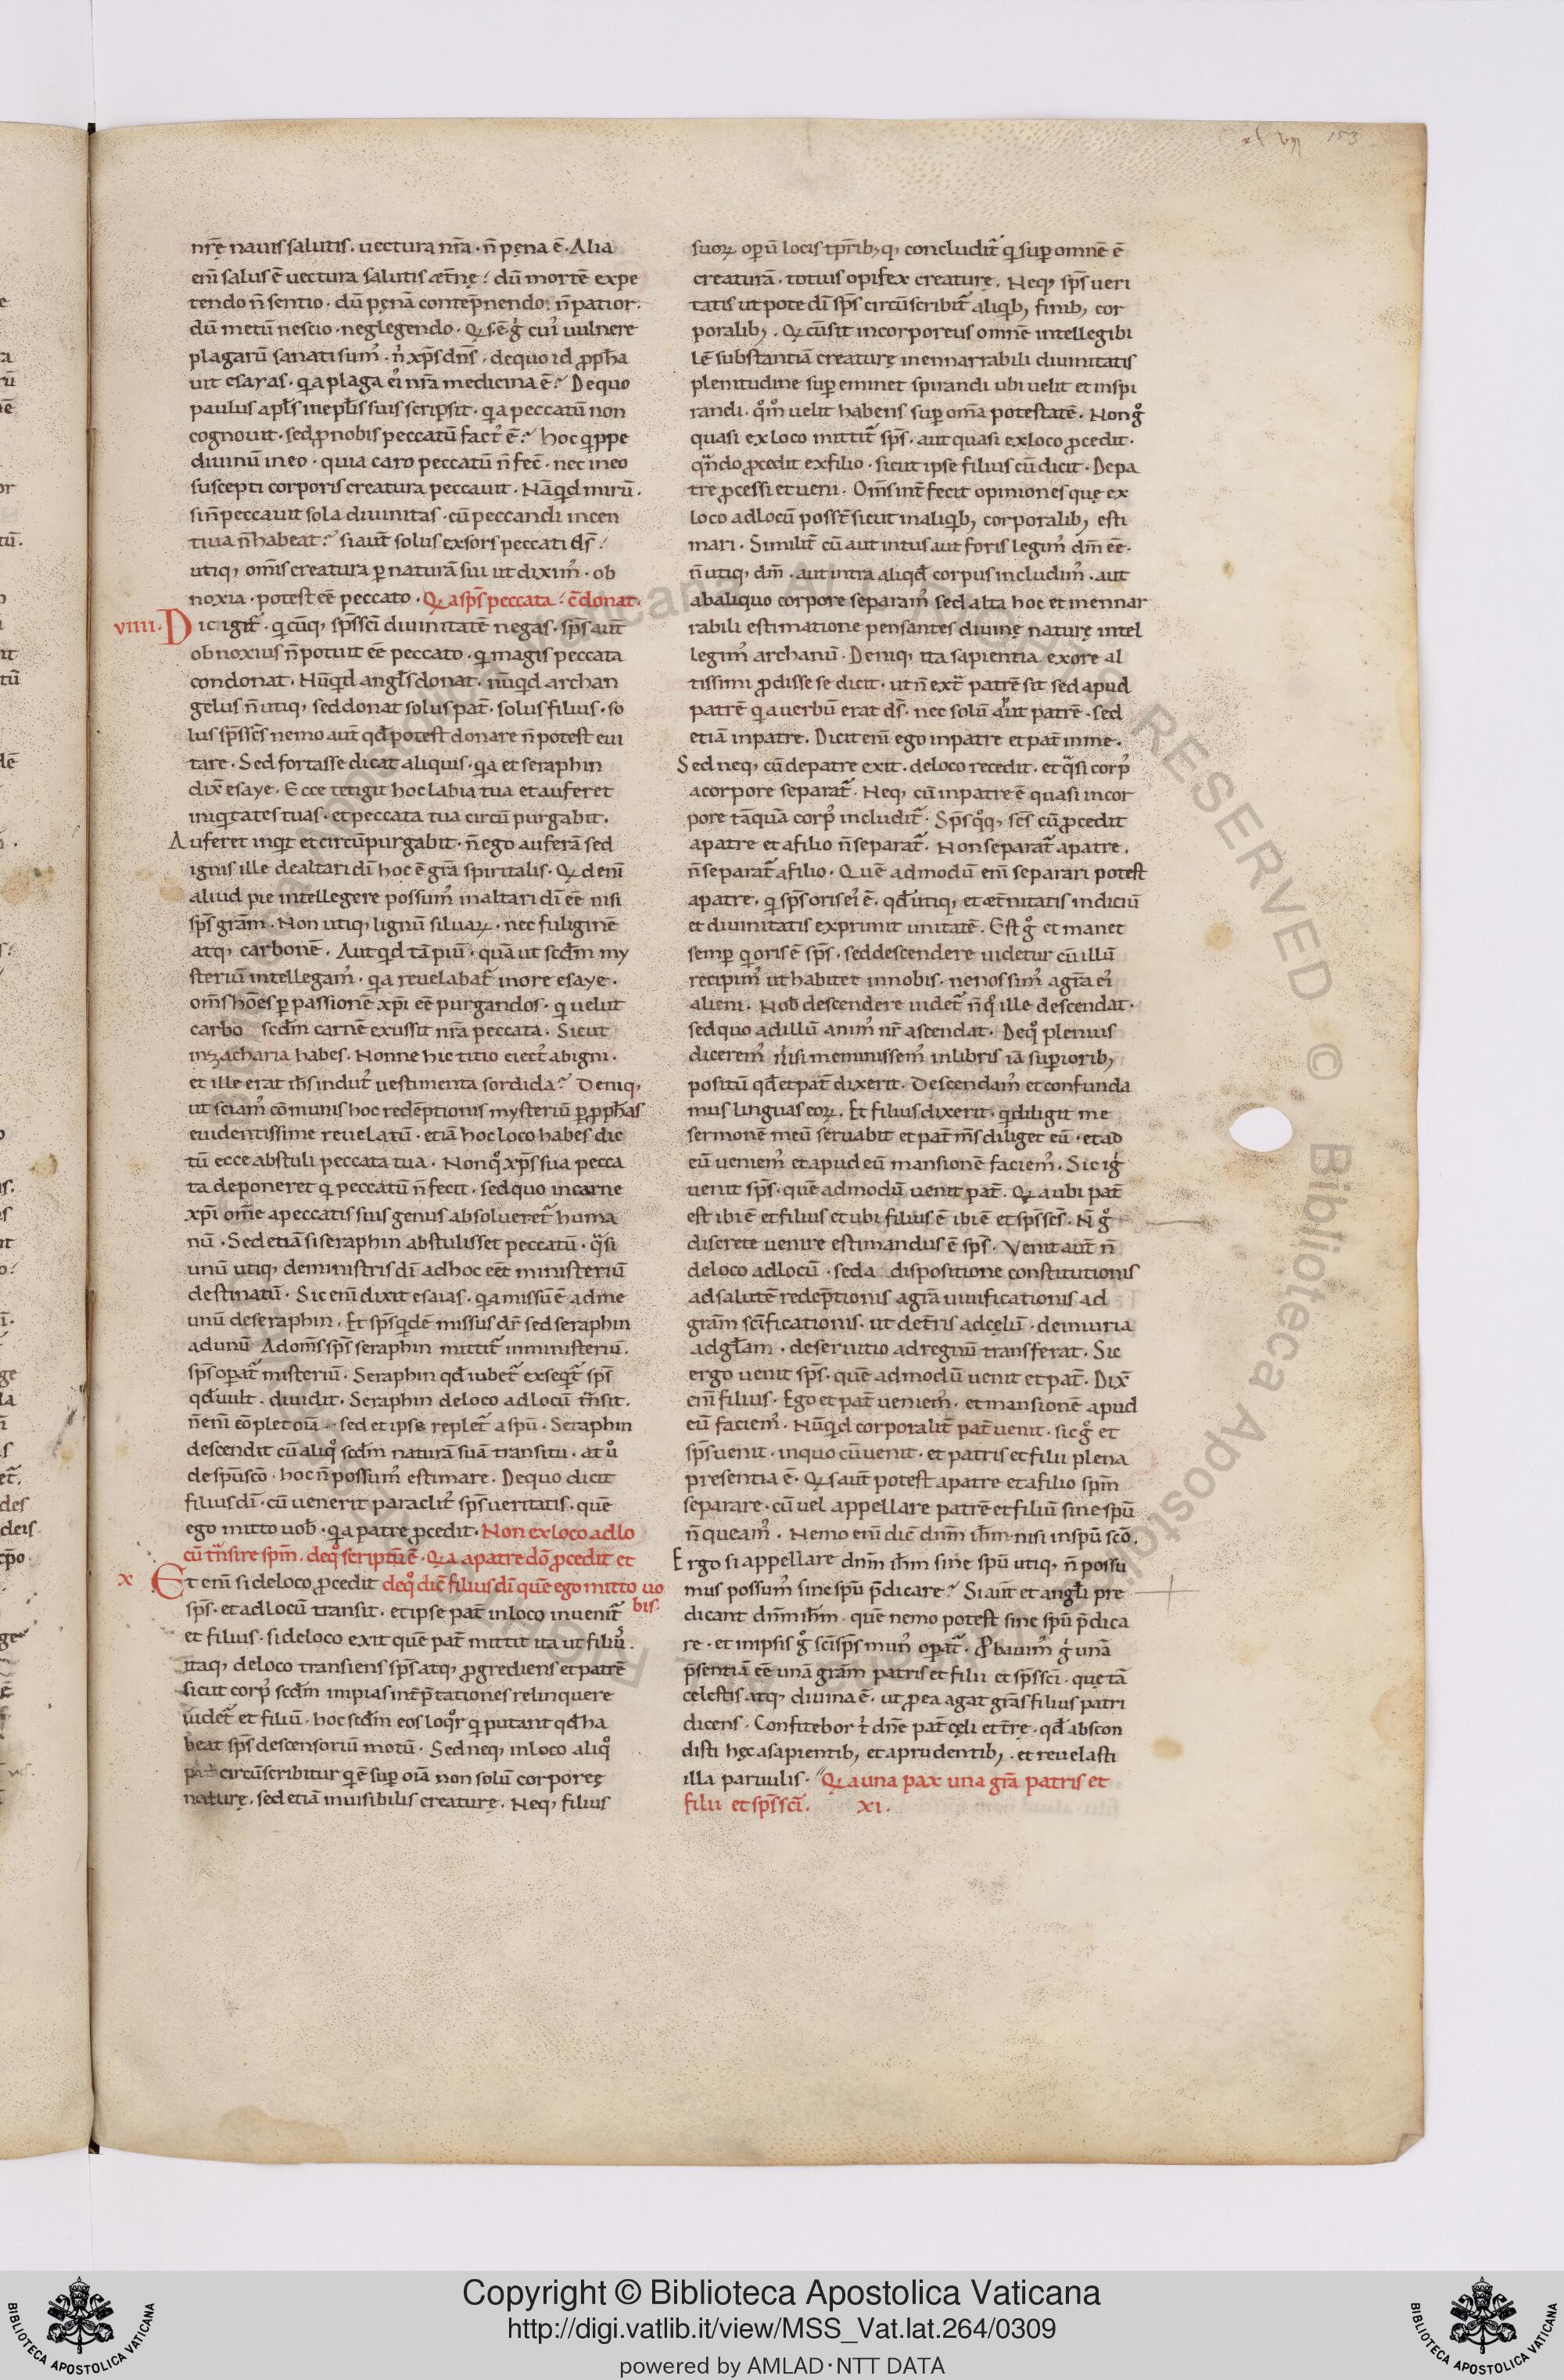 xlvij 153
nr̄ę nauis salutis. uectura nr̄a. n̄ pęna ē. Alia
eni̅ salus ē uectura salutis æt̄nę? dū mortē expe
tendo n̄ sentio. dū pęnā contēpnendo. n̄ patior.
dū metū nescio. neglegendo. Qͥs ē gͥ cuiꝰ uulnere
plagarū sanati sumꝰ. nͥ xp̄s dn̄s. de quo id ꝓph̄a
uit esayas. qͥa plaga eiꝰ nr̄a medicina ē? De quo
paulus apl̄s in epl̄is suis scripsit. qͥa peccatū non
cognouit. sed ꝓ nobis peccatū factꝰ ē? hoc qͥppe
diuinū in eo. quia caro peccatū n̄ fec̄. nec in eo
suscepti corporis creatura peccauit. Nā qͥd mirū.
si n̄ peccauit sola diuinitas. cū peccandi incen
tiua n̄ habeat? si aut̄ solus exsors peccati ds̄?
utiqꝫ om̄is creatura ꝑ naturā sui ut diximꝰ. ob
noxia. potest eē peccato. Qͥa sp̄s peccata c̄donat.
viiii. Dic igit̄. qͥcūqꝫ sp̄s sc̄i diuinitatē negas. sp̄s aut̄
obnoxius n̄ potuit eē peccato. qͥ magis peccata
condonat. Nūqͥd angl̄s donat. nūqͥd archan
gelus n̄ utiqꝫ sed donat solus pat̄. solus filius. so
lus sp̄s sc̄s nemo aut̄ qd̄ potest donare n̄ potest eui
tare. Sed fortasse dicat aliquis. qͥa et seraphin
dix̄ esaye. Ecce tetigit hoc labia tua et auferet
iniqͥtates tuas. et peccata tua circū purgabit.
Auferet inqͥt et circūpurgabit. n̄ ego auferā sed
ignis ille de altari dī hoc ē gr̄a spiritalis. Qͥd eni̅
aliud pie intellegere possumꝰ in altari dī eē nisi
sp̄s gr̄am. Non utiqꝫ lignū siluaꝝ. nec fuliginē
atqꝫ carbonē. Aut qͥd tā piū. quā ut scd̄m my
steriū intellegamꝰ. qͥa reuelabat̄ in ore esaye.
om̄s hoēs ꝑ passionē xp̄i eē purgandos. qͥ uelut
carbo scd̄m carnē exussit nr̄a peccata. Sicut
in zacharia habes. Nonne hic titio eiectꝰ ab igni.
et ille erat ih̄s indutꝰ uestimenta sordida? Deniqꝫ
ut sciamꝰ cōmunis hoc redēptionis mysteriū ꝑ ꝓph̄as
euidentissime reuelatū. etiā hoc loco habes dic
tū ecce abstuli peccata tua. Non qͦ xp̄s sua pecca
ta deponeret qͥ peccatū n̄ fecit. sed quo in carne
xp̄i om̄e a peccatis suis genus absolueret̄ huma
nū. Sed etiā si seraphin abstulisset peccatū. qͣsi
unū utiqꝫ de ministris dī ad hoc eēt ministeriū
destinatū. Sic eni̅ dixit esaias. qͥa missū ē ad me
unū de seraphin. Et sp̄s qͥdē missus dr̄ sed seraphin
ad unū Ad om̄s sp̄s seraphin mittit̄ in ministeriū.
sp̄s oꝑat̄ misteriū. Seraphin qd̄ iubet̄ exseqͥt̄ sp̄s
qd̄ uult. diuidit. Seraphin de loco ad locū tn̄sit.
n̄ eni̅ cōplet oīa. sed et ipse replet̄ a spū. Seraphin
descendit cū aliqͦ scd̄m naturā suā transitu. at uͦ
de spū scō. hoc n̄ possumꝰ estimare. De quo dicit
filius dī. cū uenerit paraclitꝰ sp̄s ueritatis. quē
ego mitto uob̄. qͥ a patre ꝓcedit. Non ex loco ad lo
cū tn̄sire spm̄. de qͦ scriptū ē. Qͥa a patre dō ꝓcedit et
x Et eni̅ si de loco ꝓcedit de qͦ dic̄ filius dī quē ego mitto uo
bis.
sp̄s. et ad locū transit. et ipse pat̄ in loco inuenit̄
et filius. si de loco exit quē pat̄ mittit ita ut filiuꝰ.
itaqꝫ de loco transiens sp̄s atqꝫ ꝓgrediens et patrē
sicut corpꝰ scd̄m impias int̄p̄tationes relinquere
uidet̄ et filiū. hoc scd̄m eos loqͦr qͥ putant qd̄ ha
beat sp̄s descensoriū motū. Sed neqꝫ in loco aliqͦ
pat̄ circūscribitur qͥ ē suꝑ oīa non solū corporeę
naturę. sed etiā inuisibilis creaturę. Neqꝫ filius
suoꝝ oꝑū locis tp̄ribꝫqꝫ concludit̄ qͥ suꝑ omnē ē
creaturā. totius opifex creaturę. Neqꝫ sp̄s ueri
tatis ut pote dī sp̄s circūscribit̄ aliqͥbꝫ finibꝫ cor
poralibꝫ. Qͥ cū sit incorporeus omnē intellegibi
lē substantiā creaturę inennarrabili diuinitatis
plenitudine suꝑ eminet spirandi ubi uelit et inspi
randi. qͦmͦ uelit habens suꝑ om̄a potestatē. Non gͦ
quasi ex loco mittit̄ sp̄s. aut quasi ex loco ꝓcedit.
qn̄do ꝓcedit ex filio. sicut ipse filius cū dicit. De pa
tre ꝓcessi et ueni. Om̄s int̄fecit opiniones quę ex
loco ad locū poss̄t sicut in aliqͥbꝫ corporalibꝫ esti
mari. Similit̄ cū aut intus aut foris legimꝰ dm̄ eē.
n̄ utiqꝫ dm̄. aut intra aliqd̄ corpus includimꝰ. aut
ab aliquo corpore separamꝰ sed alta hoc et inennar
rabili estimatione pensantes diuinę naturę intel
legimꝰ archanū. Deniqꝫ ita sapientia ex ore al
tissimi ꝓdisse se dicit. ut n̄ ext̄ patrē sit sed apud
patrē qͥa uerbū erat ds̄. nec solū aut patrē. sed
etiā in patre. Dicit eni̅ ego in patre et pat̄ in me.
Sed neqꝫ cū de patre exit. de loco recedit. et qͣsi corpꝰ
a corpore separat̄. Neqꝫ cū in patre ē quasi in cor
pore tāquā corpꝰ includit̄. Sp̄s qͦqꝫ sc̄s cū ꝓcedit
a patre et a filio n̄ separat̄. Non separat̄ a patre.
n̄ separat̄ a filio. Quē admodū eni̅ separari potest
a patre. qͥ sp̄s oris eiꝰ ē. qd̄ utiqꝫ et æt̄nitatis indiciū
et diuinitatis exprimit unitatē. Est gͦ et manet
semꝑ qͥ oris ē sp̄s. sed descendere uidetur cū illū
recipimꝰ ut habitet in nobis. ne nos simꝰ a gr̄a eiꝰ
alieni. Nob̄ descendere uidet̄ n̄ qͦ ille descendat.
sed quo ad illū animꝰ nr̄ ascendat. De qͦ plenius
diceremꝰ nisi meminissemꝰ in libris iā suꝑioribꝫ
positū qd̄ et pat̄ dixerit. Descendamꝰ et confunda
mus linguas eoꝝ. Et filius dixerit. qͥ diligit me
sermonē meū seruabit et pat̄ m̄s diliget eū. et ad
eū ueniemꝰ et apud eū mansionē faciemꝰ. Sic igͥ
uenit sp̄s. quē admodū uenit pat̄. Qͥa ubi pat̄
est ibi ē et filius et ubi filius ē ibi ē et sp̄s sc̄s. N̄ gͦ
discrete uenire estimandus ē sp̄s. Venit aut̄ n̄
de loco ad locū. sed a dispositione constitutionis
ad salutē redēptionis a gr̄a uiuificationis ad
gr̄am sc̄ificationis. ut de t̄ris ad cęlū. de iniuria
ad gl̄am. de seruitio ad regnū transferat. Sic
ergo uenit sp̄s. quē admodū uenit et pat̄. Dix̄
eni̅ filius. Ego et pat̄ ueniemꝰ. et mansionē apud
eū faciemꝰ. Nūqͥd corporalit̄ pat̄ uenit. sic gͦ et
sp̄s uenit. in quo cū uenit. et patris et filii plena
presentia ē. Qͥs aut̄ potest a patre et a filio spm̄
separare. cū uel appellare patrē et filiū sine spū
n̄ queamꝰ. Nemo eni̅ dic̄ dnm̄ ih̄m nisi in spū scō.
Ergo si appellare dnm̄ ih̄m sine spū utiqꝫ n̄ possu
mus possumꝰ sine spū p̄dicare? Si aut̄ et angl̄i pre
dicant dnm̄ ih̄m. quē nemo potest sine spū p̄dica
re. et in ipsis gͦ sc̄i sp̄s munꝰ oꝑat̄. Ꝓbauimꝰ gͥ unā
p̄sentiā eē unā gr̄am patris et filii et sp̄s sc̄i. quę tā
cęlestis atqꝫ diuina ē. ut ꝓ ea agat gr̄as filius patri
dicens. Confitebor tͥ dn̄e pat̄ cęli et t̄rę. qd̄ abscon
disti hęc a sapientibꝫ et a prudentibꝫ. et reuelasti
illa paruulis. Qͥa una pax una gr̄a patris et
filii et sp̄s sc̄i. xi.
RIGHTS RESERVED © Biblioteca Apostolica Vaticana
Copyright © Biblioteca Apostolica Vaticana
http://digi.vatlib.it/view/MSS_Vat.lat.264/0309
powered by AMLAD·NTT DATA
BIBLIOTECA APOSTOLICA VATICANA
BIBLIOTECA APOSTOLICA VATICANA